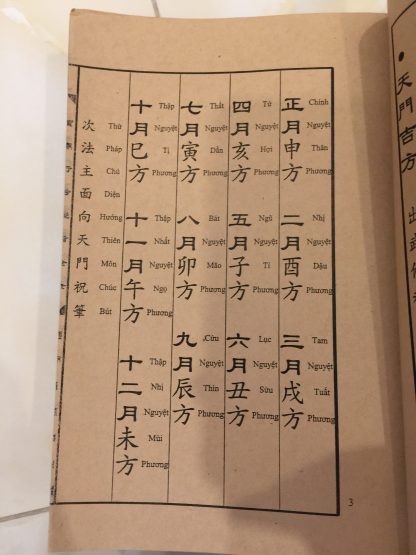 天門吉方
正月申方 二月酉方 三月戌方
Chính Nguyệt Thân Phương Nhị Nguyệt Dậu Phương Tam Nguyệt Tuất Phương
四月亥方 五月子方 六月丑方
Tứ Nguyệt Hợi Phương Ngũ Nguyệt Tí Phương Lục Nguyệt Sửu Phương
七月寅方 八月卯方 九月辰方
Thất Nguyệt Dần Phương Bát Nguyệt Mão Phương Cửu Nguyệt Thìn Phương
十月巳方 十一月午方 十二月未方
Thập Nguyệt Tị Phương Thập Nhất Nguyệt Ngọ Phương Thập Nhị Nguyệt Mùi Phương
次法主面向天門祝筆
Thứ Pháp Chủ Diện Hướng Thiên Môn Chúc Bút
3